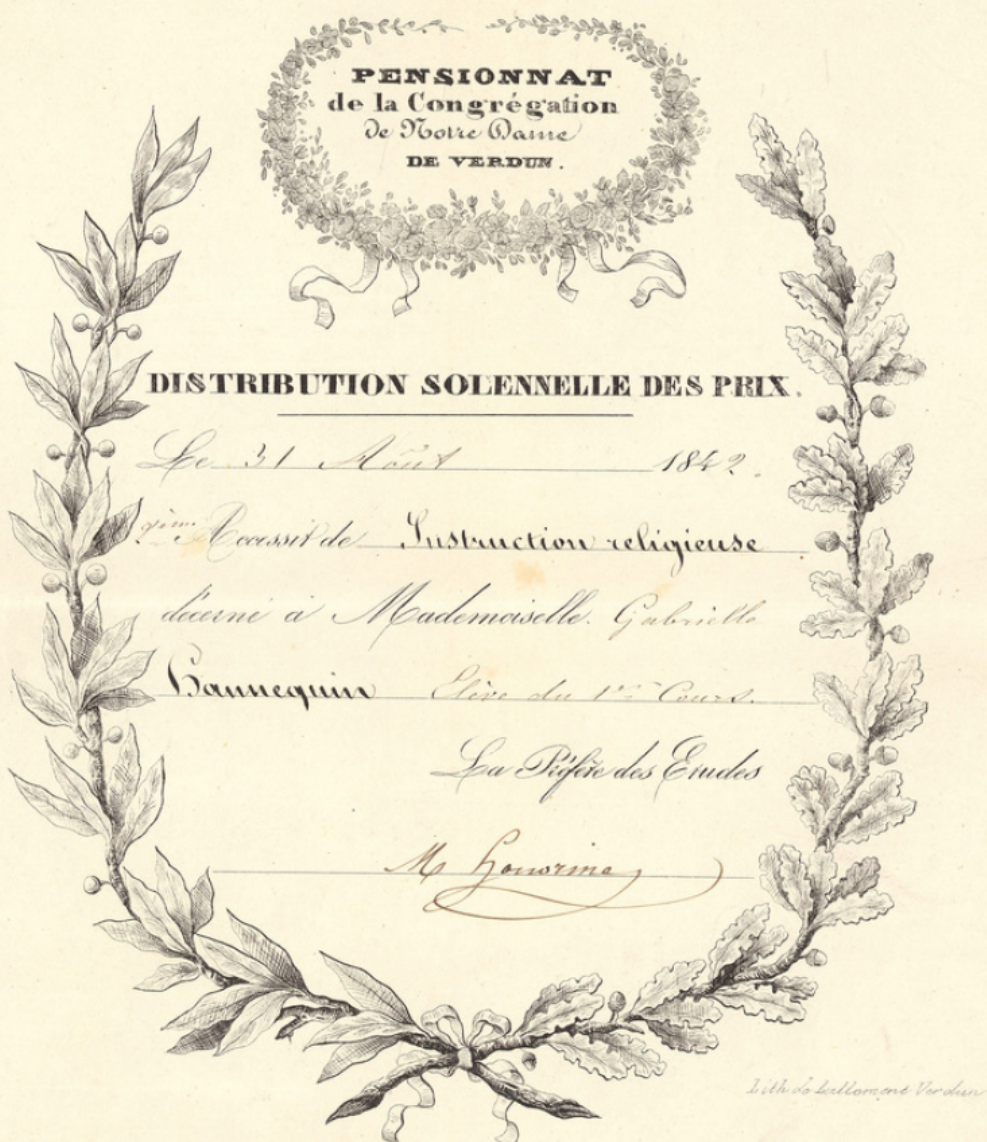 PENSIONNAT
de la Congrégation
de Notre Dame
DE VERDUN.
DISTRIBUTION SOLENNELLE DES PRIX.
Le 31 Août 1842.
Accessit de Instruction religieuse
décerné à Mademoiselle. Gabrielle
Hannequin Elève du 1er Cours.
La Préfète des Etudes
M Honorine
Lith de Lallemant Verdun